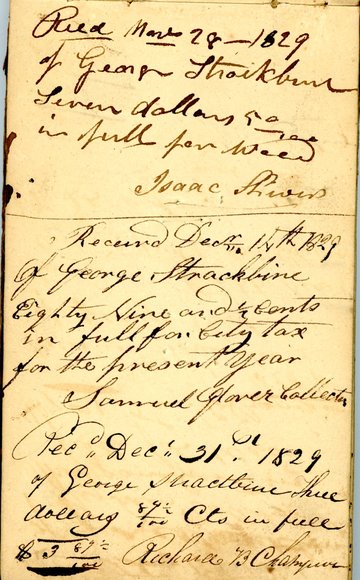 Recd Nov 28 - 1829
of George Strackbine
Seven dollars 50/100
in full for Wood
Isaac Shivers
Received Decr 14th 1829
Of George Strackbine
Eighty Nine and ½ cents
in full for City tax
for the present Year
Samuel Glover Collector
Rec'd Dec' 31st 1829
of George Stractbine Three
dollars 87½/100 Cts in full
$ 3 87½/100 Richard B